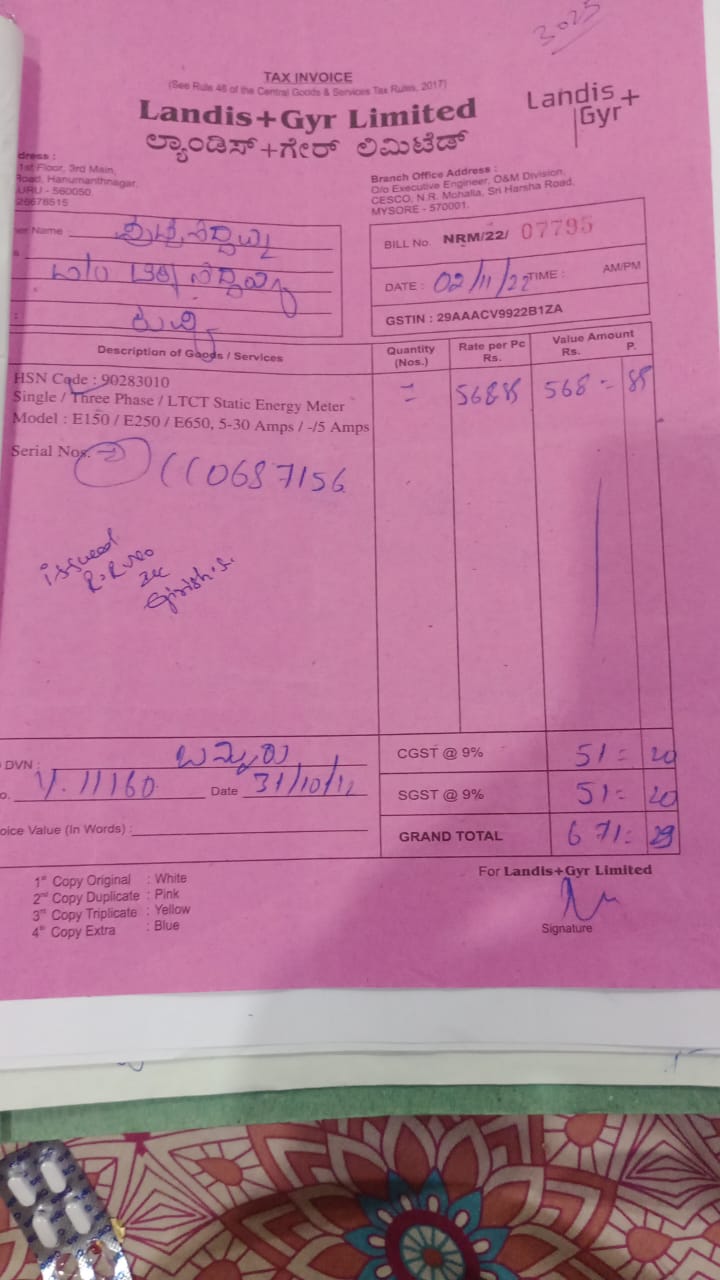 3025
TAX INVOICE
(See Rule 46 of the Central Goods & Services Tax Rules, 2017)
Landis+Gyr Limited
ಲ್ಯಾಂಡಿಸ್+ಗೇರ್ ಲಿಮಿಟೆಡ್
Landis+
Gyr
dress :
1st Floor, 3rd Main,
Road, Hanumanthnagar,
URU - 560050.
26678515
Branch Office Address :
O/o Executive Engineer, O&M Division,
CESCO, N.R. Mohalla, Sri Harsha Road,
MYSORE - 570001.
er Name
BILL No. NRM/22/ 07795
DATE : 02/11/22 TIME : AM/PM
GSTIN : 29AAACV9922B1ZA
Description of Goods / Services
Quantity (Nos.)
Rate per Pc Rs.
Value Amount Rs. P.
HSN Code : 90283010
Single / Three Phase / LTCT Static Energy Meter
Model : E150 / E250 / E650, 5-30 Amps / -/5 Amps
568 = 85
Serial Nos.
issued
Girish.S.
DVN :
Y. 11160 Date 31/10/
oice Value (In Words) :
CGST @ 9% 51 = 20
SGST @ 9% 51 = 20
GRAND TOTAL 671 = 29
1st Copy Original : White
2nd Copy Duplicate : Pink
3rd Copy Triplicate : Yellow
4th Copy Extra : Blue
For Landis+Gyr Limited
Signature